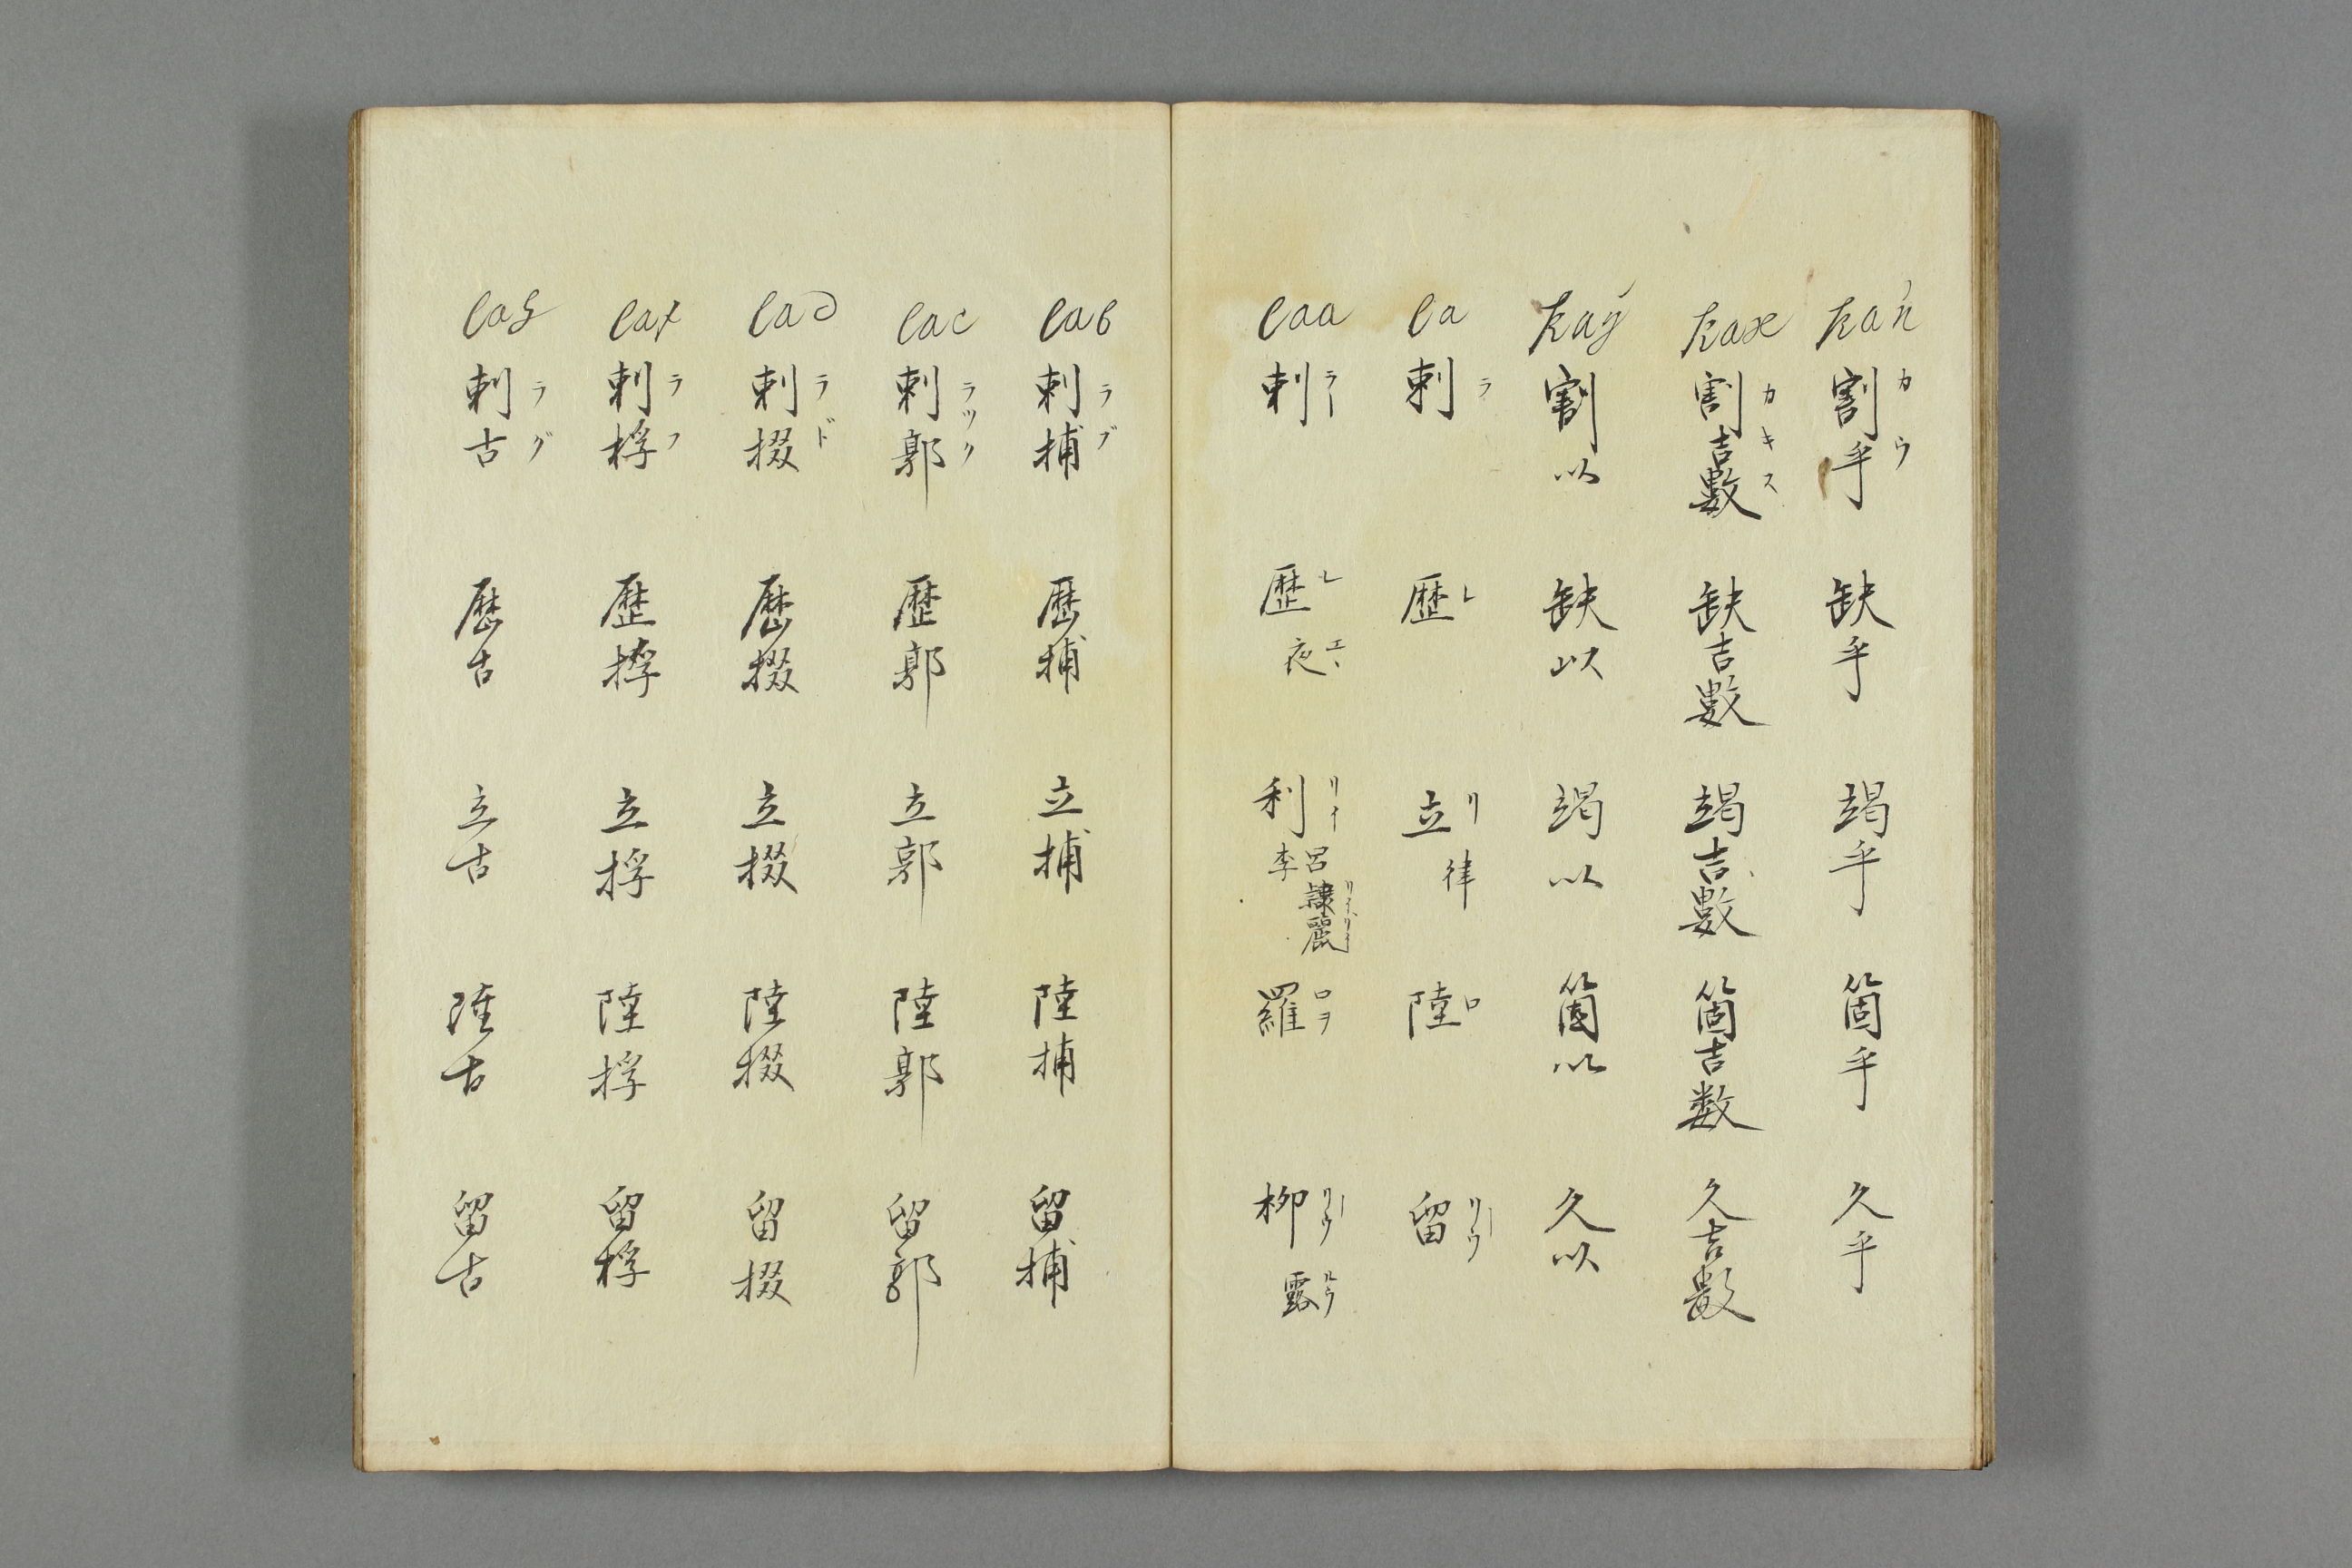 kaú 割乎 カウ 缺乎 竭乎 箇乎 久乎
kax 割吉數 カキス 缺吉數 竭吉數 箇吉数 久吉數
kaÿ 割以 缺以 竭以 箇以 久以
la 剌 ラ 歴 レ 立 リ 律 陸 ロ 留 リーウ
laa 剌 ラー 歴 レ 夜 エヽ 利 リイ 呂 李 隷麗 リイ リイ 羅 ロヲ 柳 リーウ 露 ルウ
lab 剌捕 ラブ 歴捕 立捕 陸捕 留捕
lac 剌郭 ラツク 歴郭 立郭 陸郭 留郭
lad 剌掇 ラド 歴掇 立掇 陸掇 留掇
laf 剌桴 ラフ 歴桴 立桴 陸桴 留桴
lag 剌古 ラグ 歴古 立古 陸古 留古